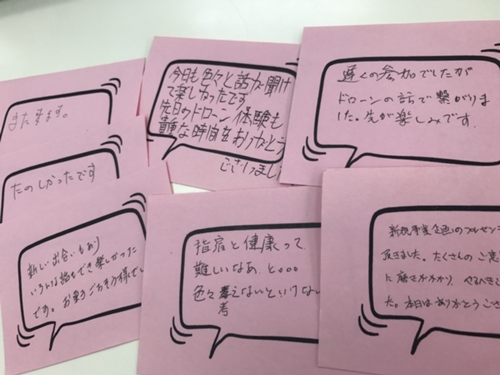 また来ます。
たのしかったです
新しい出会いもあり
いろいろな話もでき楽しかった
です。お疲れさま
今日も色々と話が聞け
て楽しかったです
先日のドローン体験も
貴重な時間をありがとう
ございまし
遅くの参加でしたが
ドローンの話で繋がりま
した。先が楽しみです。
指宿と健康って
難しいなあ、と。。。
色々考えないといけない
考
新規事業企画のプレゼン
頂きました。たくさんのご意
た。本日はありがとうござ